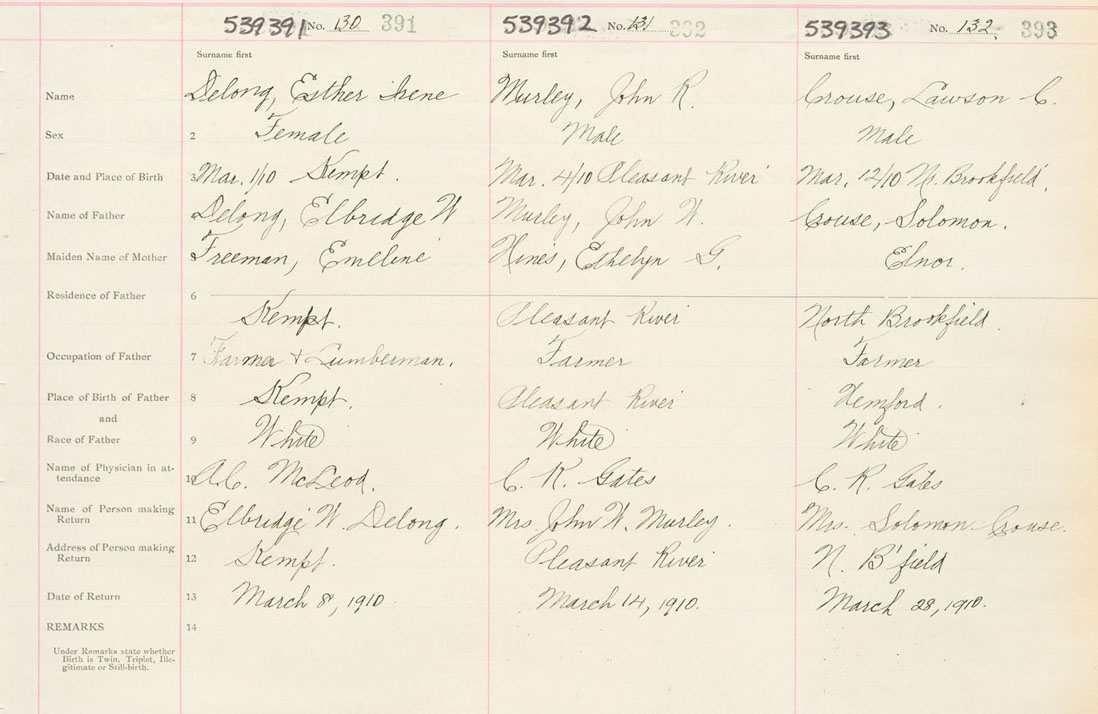 539391 No. 130 391 539392 No. 131 392 539393 No. 132. 393
Surname first Surname first Surname first
Name Delong, Esther Irene Murley, John R. Crouse, Lawson C.
Sex 2 Female Male Male
Date and Place of Birth 3 Mar. 1/10 Kempt. Mar. 4/10 Pleasant River Mar. 12/10 No. Brookfield.
Name of Father Delong, Elbridge W Murley, John W. Crouse, Solomon.
Maiden Name of Mother Freeman, Emeline Hines, Ethelyn G. Elnor.
Residence of Father 6
Kempt. Pleasant River North Brookfield.
Occupation of Father 7 Farmer + Lumberman. Farmer Farmer
Place of Birth of Father 8 Kempt. Pleasant River Hemford.
and
Race of Father 9 White White White
Name of Physician in at-
tendance 10 A.C. McLeod. C. R. Gates C. R. Gates
Name of Person making
Return 11 Elbridge W. Delong. Mrs John W. Murley. Mrs. Solomon Crouse.
Address of Person making
Return 12 Kempt. Pleasant River N. B'field
Date of Return 13 March 8, 1910 March 14, 1910. March 28, 1910.
REMARKS 14
Under Remarks state whether
Birth is Twin, Triplet, Ille-
gitimate or Still-birth.